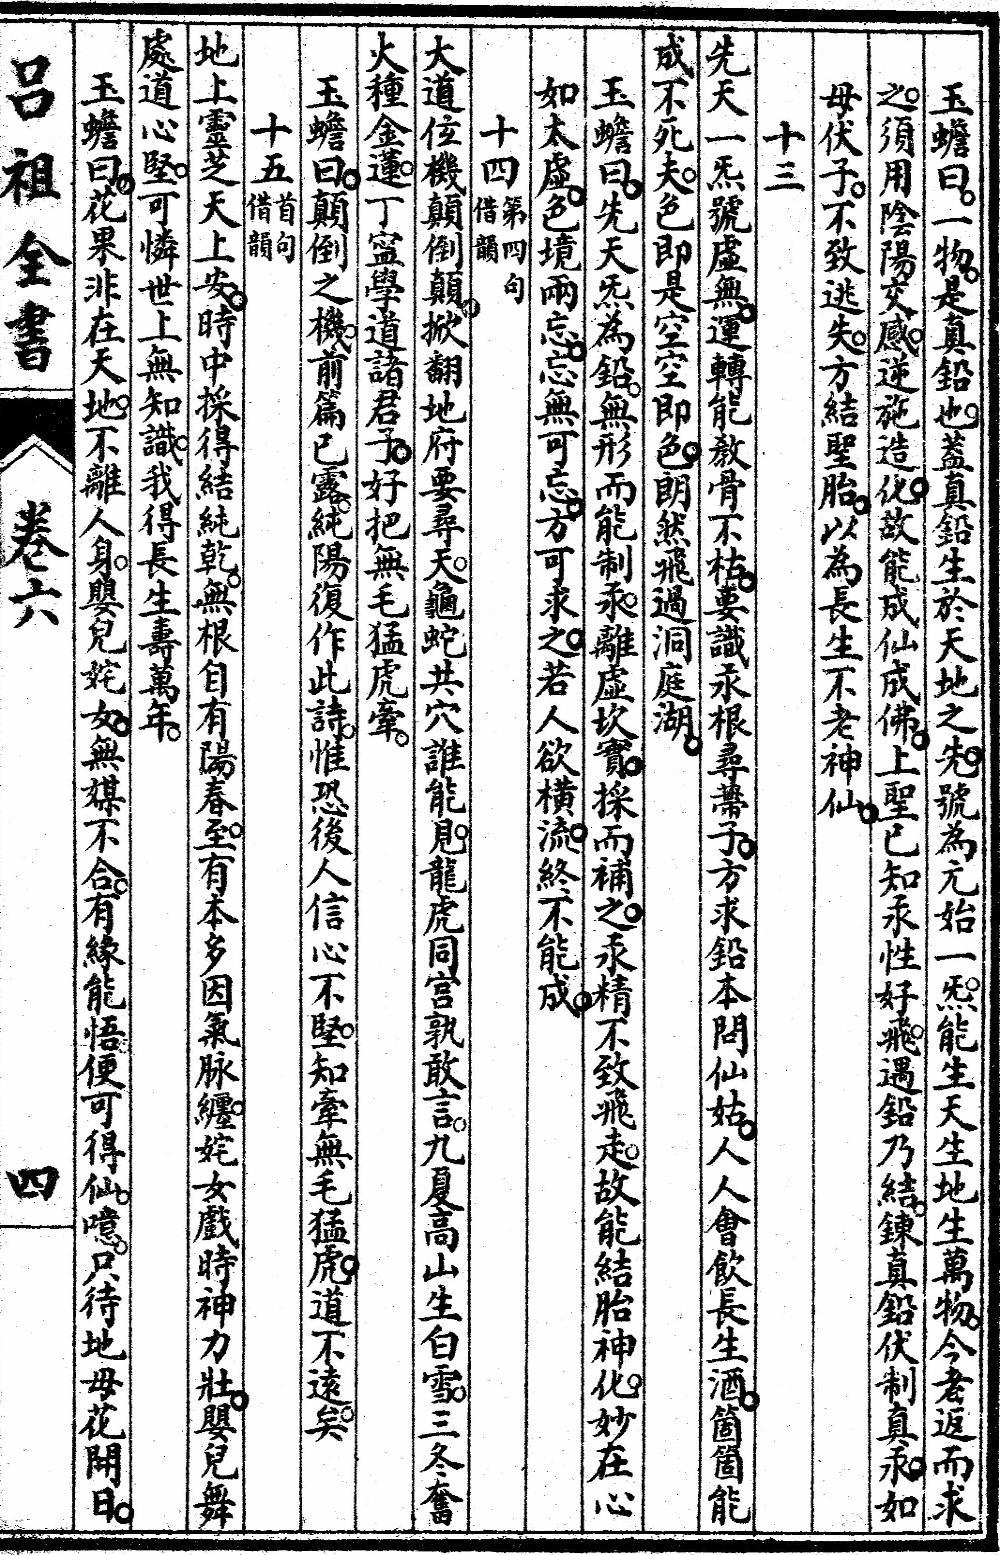 玉蟾曰。一物。是真鉛也。蓋真鉛生於天地之先。號為元始一炁。能生天生地生萬物。今者返而求
之。須用陰陽交感。逆施造化。故能成仙成佛。上聖已知汞性好飛。遇鉛乃結。鍊真鉛伏制真汞。如
母伏子。不致逃失。方結聖胎。以為長生不老神仙。
十三
先天一炁號虛無。運轉能教骨不枯。要識汞根尋蒂子。方求鉛本問仙姑。人人會飲長生酒。箇箇能
成不死夫。色即是空空即色。朗然飛過洞庭湖。
玉蟾曰。先天炁為鉛。無形而能制汞。離虛坎實。採而補之。汞精不致飛走。故能結胎神化。妙在心
如太虛。色境兩忘。忘無可忘。方可求之。若人欲橫流。終不能成。
十四第四句借韻
大道位機顛倒顛。掀翻地府要尋天。龜蛇共穴誰能見。龍虎同宮孰敢言。九夏高山生白雪。三冬奮
火種金蓮。丁寧學道諸君子。好把無毛猛虎牽。
玉蟾曰。顛倒之機。前篇已露。純陽復作此詩。惟恐後人信心不堅。知牽無毛猛虎。道不遠矣。
十五首句借韻
地上靈芝天上安。時中採得結純乾。無根自有陽春至。有本多因氣脉纏。姹女戲時神力壯。嬰兒舞
處道心堅。可憐世上無知識。我得長生壽萬年。
玉蟾曰。花果非在天地。不離人身。嬰兒姹女。無媒不合。有緣能悟便可得仙。噫。只待地母花開日。
呂祖全書
卷六
四